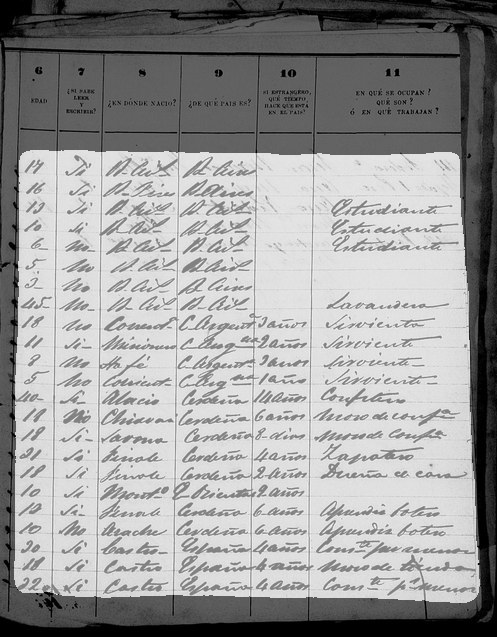 6 7 8 9 10 11
EDAD ¿SI SABE LEER Y ESCRIBIR? ¿EN DÓNDE NACIÓ? ¿DE QUÉ PAIS ES? SI ESTRANGERO, QUÉ TIEMPO HACE QUE ESTÁ EN EL PAIS? EN QUÉ SE OCUPAN? QUÉ SON? Ó EN QUÉ TRABAJAN?
17 Si B. Ais B. Aires
16 Si B. Aires B. Aires
13 Si B. Ais B. Ais Estudiante
10 Si B. Ais B. Ais Estudiante
6 No B. Ais B. Ais Estudiante
5 No B. Ais B. Ais
3 No B. Ais B. Aires
45 No B. Ais B. Ais Lavandera
18 No C. Argentª 3 años Sirvienta
11 Si Misiones 2 años Sirviente
8 No C. Argentª 3 años Sirviente
5 No 1 año Sirviente
40 Si Alacio Cerdeña 14 años Confitero
18 No Chiavari Cerdeña 6 años Moso de confª
18 Si Savona Cerdeña 8 dias Moso de confª
21 Si Cerdeña 4 años Zapatero
18 Si Cerdeña 2 años Dueña de casa
10 Si Montº R. Oriental 2 años
12 Si Cerdeña 6 años Aprendis botero
10 No Cerdeña 6 años Aprendis botero
20 Si Castro España 4 años Conste por menor
18 Si Castro España 4 años Moso de tienda
22 Si Castro España 4 años Conste pr menor